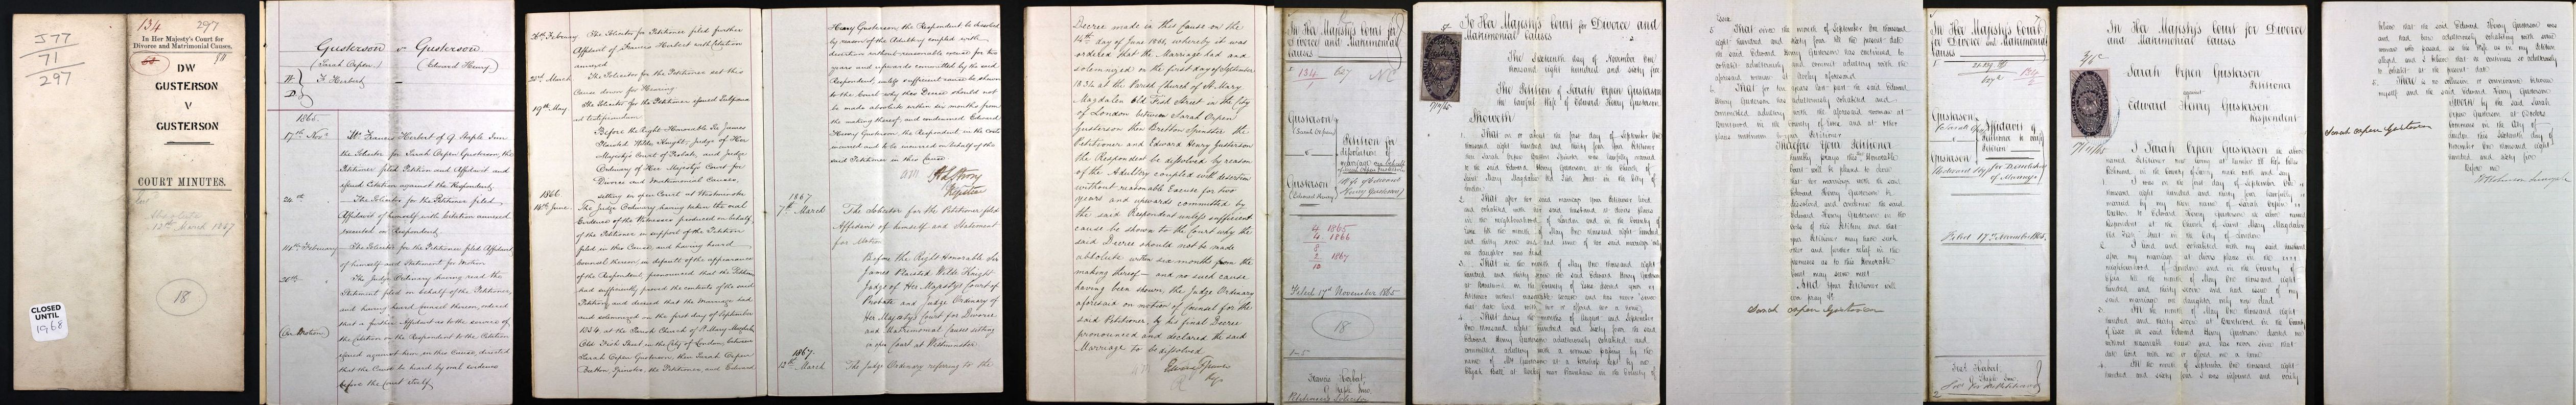 134 297
J 77
71
297
In Her Majesty's Court for
Divorce and Matrimonial Causes.
DW
GUSTERSON
V
GUSTERSON
COURT MINUTES.
12th March 1867
18
CLOSED
UNTIL
1968
Gusterson v Gusterson
(Sarah Orpen) (Edward Henry)
F. Herbert
1865
17th Novr Mr Francis Herbert of 9 Staple Inn
the Solicitor for Sarah Orpen Gusterson, the
Petitioner filed Petition and Affidavit and
issued Citation against the Respondent
24th The Solicitor for the Petitioner filed
Affidavit of himself with Citation annexed
executed on Respondent
February The Solicitor for the Petitioner filed Affidavit
of himself and Statement for Motion
20th The Judge Ordinary having read the
Statement filed on behalf of the Petitioner,
and having heard Counsel thereon, ordered
that a further Affidavit as to the service of
(On Motion) the Citation on the Respondent to the Citation
issued against him in this Cause, directed
that the Cause be heard by oral evidence
before the Court itself
26th February The Solicitor for Petitioner filed further
Affidavit of Francis Herbert with Citation
annexed
March The Solicitor for the Petitioner set this
Cause down for Hearing
19th May The Solicitor for the Petitioner issued Subpoena
ad testificandum
Before the Right Honorable Sir James
Plaisted Wilde Knight, Judge of Her
Majesty's Court of Probate, and Judge
Ordinary of Her Majesty's Court for
Divorce and Matrimonial Causes,
1866 sitting in open Court at Westminster
14th June The Judge Ordinary having taken the oral
Evidence of the Witnesses produced on behalf
of the Petitioner in support of the Petition
filed in this Cause and having heard
Counsel thereon in default of the appearance
of the Respondent, pronounced that the Petitioner
had sufficiently proved the contents of the said
Petition, and decreed that the Marriage had
and solemnized on the first day of September
1834, at the Parish Church of St Mary Magdalen
Old Fish Street in the City of London, between
Sarah Orpen Gusterson, then Sarah Orpen
Bretton Spinster, the Petitioner, and Edward
Henry Gusterson the Respondent be dissolved
by reason of the Adultery coupled with
desertion without reasonable excuse for two
years and upwards committed by the said
Respondent, unless sufficient cause be shewn
to the Court why this Decree should not
be made absolute within six months from
the making thereof, and condemned Edward
Henry Gusterson, the Respondent in the costs
incurred and to be incurred on behalf of the
said Petitioner in this Cause
Registrar
1867
7th March The Solicitor for the Petitioner filed
Affidavit of himself and Statement
for Motion
Before the Right Honorable Sir
James Plaisted Wilde Knight
Judge of Her Majesty's Court of
Probate and Judge Ordinary of
Her Majesty's Court for Divorce
and Matrimonial Causes sitting
in open Court at Westminster
1867
12th March The Judge Ordinary referring to the
Decree made in this Cause on the
14th day of June 1866, whereby it was
ordered that the Marriage had and
solemnized on the first day of September
1834 at the Parish Church of St Mary
Magdalen Old Fish Street in the City
of London between Sarah Orpen
Gusterson then Bretton Spinster the
Petitioner and Edward Henry Gusterson
the Respondent be dissolved by reason
of the Adultery coupled with desertion
without reasonable Excuse for two
years and upwards committed by
the said Respondent unless sufficient
cause be shown to the Court why the
said Decree should not be made
absolute within six months from the
making thereof – and no such cause
having been shown, the Judge Ordinary
aforesaid on motion of Counsel for the
said Petitioner, by his final Decree
pronounced and declared the said
Marriage to be dissolved
In Her Majesty's Court for
Divorce and Matrimonial
Causes
134 627
Gusterson
(Sarah Orpen)
v
Gusterson
(Edward Henry)
Petition for
dissolution of
marriage on behalf
of Sarah Orpen Gusterson
Wife of Edward
Henry Gusterson
4 1865
4 1866
8
2 1867
10
Filed 17th November 1865
18
Francis Herbert
9 Staple Inn
Petitioner's Solicitor
To Her Majesty's Court for Divorce and
Matrimonial Causes
The Sixteenth day of November One
thousand eight hundred and sixty five
The Petition of Sarah Orpen Gusterson
the lawful Wife of Edward Henry Gusterson
Sheweth
1. That on or about the first day of September One
thousand eight hundred and thirty four Your Petitioner
then Sarah Orpen Bretton Spinster was lawfully married
to the said Edward Henry Gusterson at the Church of
Saint Mary Magdalen Old Fish Street in the City of
London
2. That after her said marriage Your Petitioner lived
and cohabited with her said husband at divers places
in the neighbourhood of London and in the County of
Essex till the month of May One thousand eight hundred
and thirty nine and had issue of her said marriage only
one daughter now dead
3. That in the month of May One thousand eight
hundred and thirty nine the said Edward Henry Gusterson
at Brentwood in the County of Essex deserted your
Petitioner without reasonable excuse and has never since
that date lived with her or afforded her a home
4. That during the months of August and September
One thousand eight hundred and sixty four the said
Edward Henry Gusterson adulterously cohabited and
committed adultery with a woman passing by the
name of Mrs Gusterson at a
Essex
5. That since the month of September One thousand
eight hundred and sixty four till the present date
the said Edward Henry Gusterson has continued to
cohabit adulterously and commit adultery with the
aforesaid woman at Hockley aforesaid
6. That for ten years last past the said Edward
Henry Gusterson has adulterously cohabited and
committed adultery with the aforesaid woman at
Brentwood in the County of Essex and at other
places unknown to your Petitioner
Wherefore Your Petitioner
humbly prays this Honorable
Court will be pleased to decree
that her marriage with the said
Edward Henry Gusterson be
dissolved and condemn the said
Edward Henry Gusterson in the
costs of this Petition and that
your Petitioner may have such
other and further relief in the
premises as to this Honorable
Court may seem meet
And Your Petitioner will
ever pray &c
Sarah Orpen Gusterson
In Her Majesty's Court
for Divorce and Matrimonial
Causes
Gusterson
(Sarah Orpen)
v
Gusterson
(Edward Henry)
Affidavit of
Petitioner in verifying
Petition
for Dissolution
of Marriage
Filed 17th November 1865
Fras Herbert
9 Staple Inn
Solr for the Petitioner
In Her Majesty's Court for Divorce
and Matrimonial Causes
Sarah Orpen Gusterson
Petitioner
against
Edward Henry Gusterson
Respondent
I Sarah Orpen Gusterson the above
named Petitioner
1. I was on the first day of September One
thousand eight hundred and thirty four lawfully
married by my then name of Sarah Orpen
Bretton to Edward Henry Gusterson the above named
Respondent at the Church of Saint Mary Magdalen
Old Fish Street in the City of London
2. I lived and cohabited with my said husband
after my marriage at divers places in the
neighbourhood of London and in the County of
Essex till the month of May One thousand eight
hundred and thirty nine and had issue of my
said marriage one daughter only now dead
3. In the month of May One thousand eight
hundred and thirty nine at Brentwood in the County
of Essex the said Edward Henry Gusterson deserted me
without reasonable excuse and has never since that
date lived with me or afforded me a home
4. In the month of September One thousand eight
hundred and sixty four I was informed and verily
believe that the said Edward Henry Gusterson was
and had been adulterously cohabiting with some
woman who passed as his Wife as in my Petition
alleged and I believe that he continues so adulterously
to cohabit at the present date
There is no collusion or connivance between
myself and the said Edward Henry Gusterson
Sworn by the said Sarah
Orpen Gusterson at Doctors
Commons in the City of
London this Sixteenth day of
November One thousand eight
hundred and sixty five
Before me
Sarah Orpen Gusterson